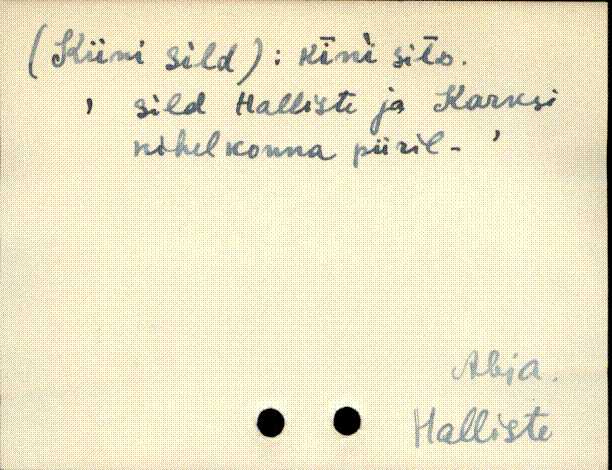 (Kiini sild): kīnì sìtò.
, sild Halliste ja Karksi
kihelkonna piiril- '
Abja.
Halliste